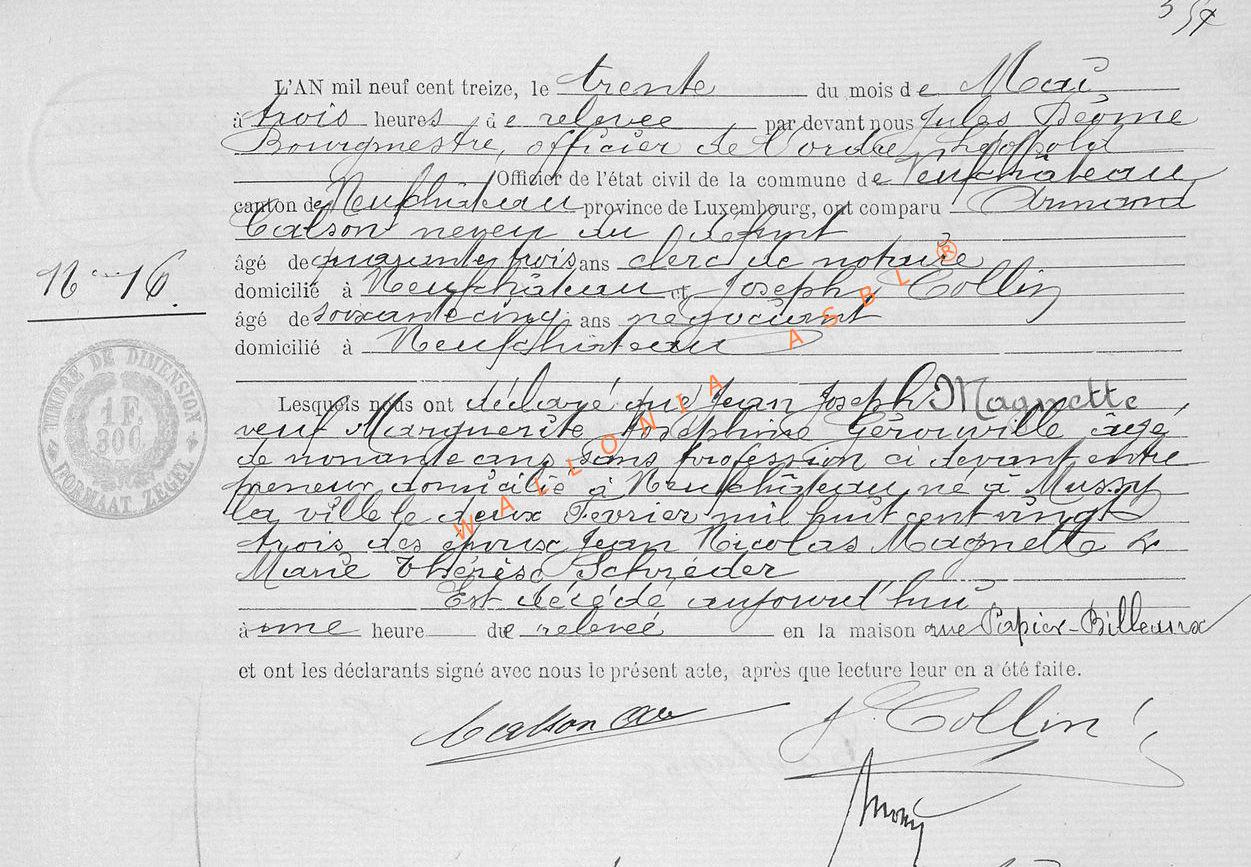 L'AN mil neuf cent treize, le trente du mois de Mai
à trois heures de relevée par devant nous Jules
Bourgmestre, officier de l'ordre Léopold
Officier de l'état civil de la commune de Neufchâteau
canton de Neufchâteau province de Luxembourg, ont comparu Armand
Calson neveu du défunt
âgé de quarante trois ans clerc de notaire
N° 16.
domicilié à Neufchâteau et Joseph Collin
âgé de soixante cinq ans négociant
domicilié à Neufchâteau
TIMBRE DE DIMENSION
1 F.
80 C.
FORMAAT ZEGEL
Lesquels nous ont déclaré que Jean Joseph Magnette
veuf Marguerite Joséphine Gérouville âgé
de nonante ans sans profession ci devant entre
preneur domicilié à Neufchâteau, né à Mussy
la ville le deux Février mil huit cent vingt
trois des époux Jean Nicolas Magnette &
Marie Thérèse Schréder
Est décédé aujourd'hui
à une heure de relevée en la maison rue Papier-Billeaux
et ont les déclarants signé avec nous le présent acte, après que lecture leur en a été faite.
Calson J. Collin
WALLONIA ASBL ®